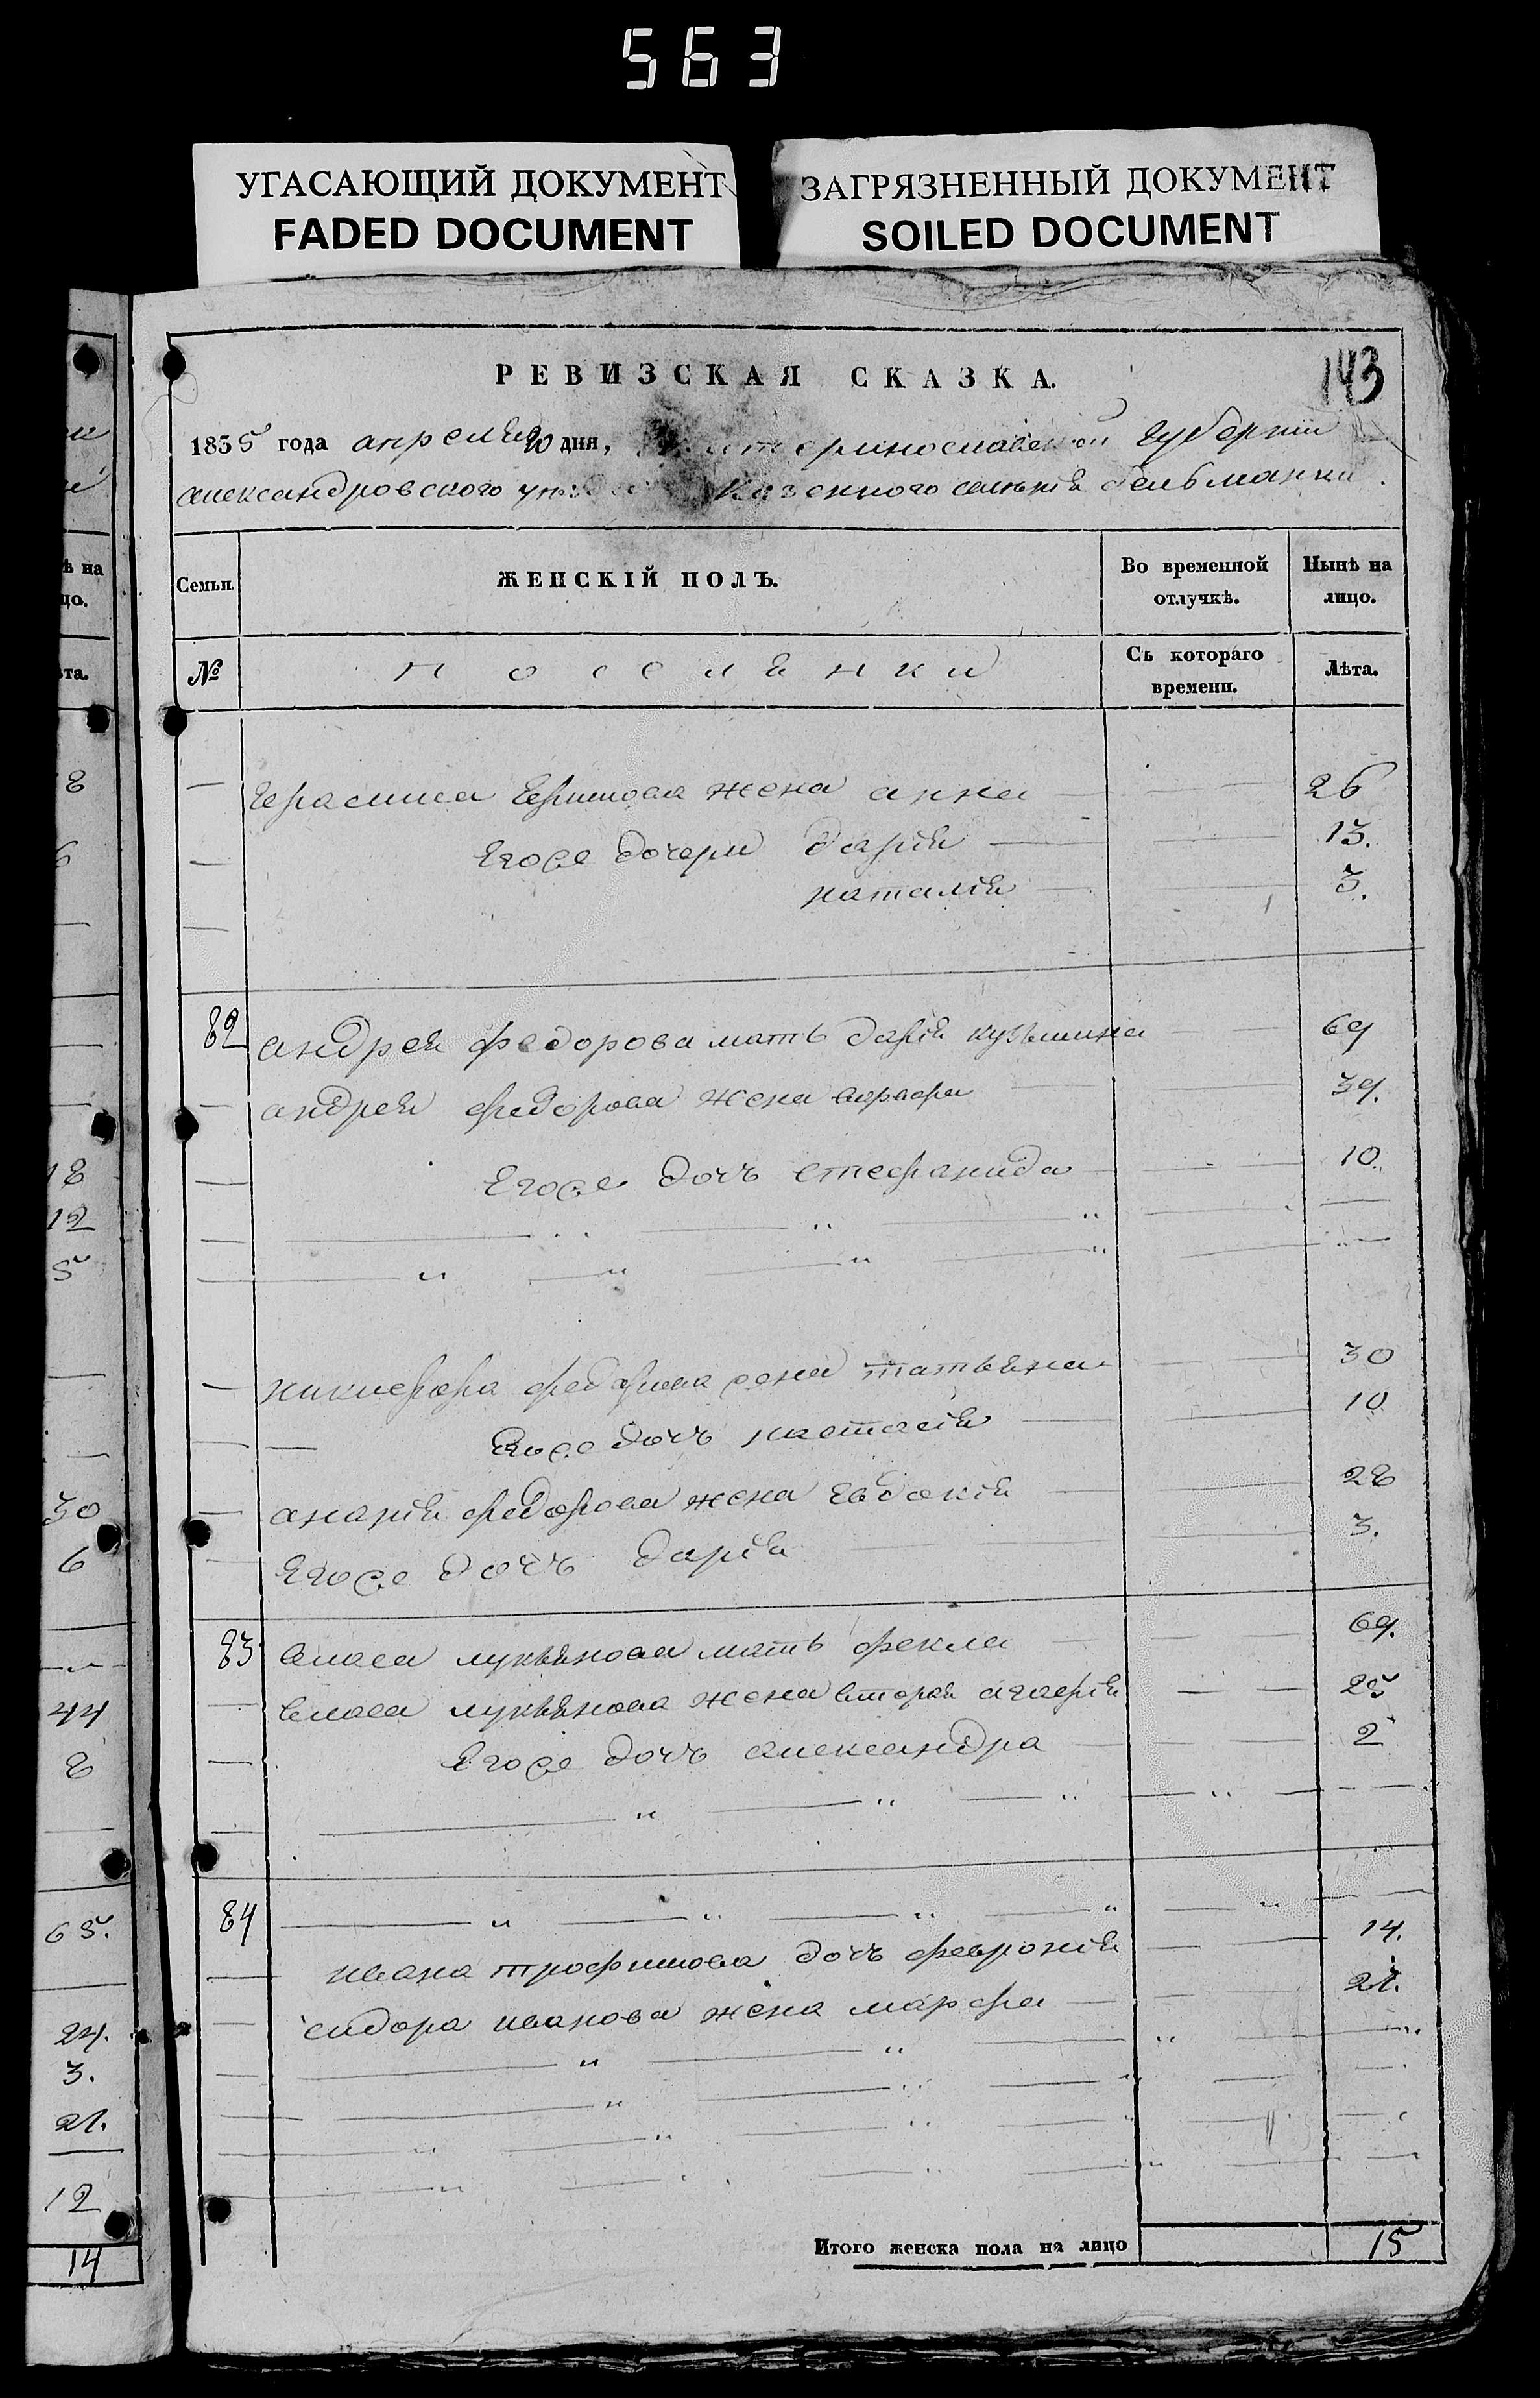 563
УГАСАЮЩИЙ ДОКУМЕНТ
FADED DOCUMENT
ЗАГРЯЗНЕННЫЙ ДОКУМЕНТ
SOILED DOCUMENT
РЕВИЗСКАЯ СКАЗКА.
143
1835 года апреля 20 дня, Екатеринославской губернии
александровского уезда Казенного селенія бельманки.
Семьи.
ЖЕНСКІЙ ПОЛЪ.
Во временной отлучкѣ.
Нынѣ на лицо.
№
поселянки
Съ котораго времени.
Лѣта.
Герасима Ефимова жена анна 26
Егоже дочери дарія 13.
наталія 3.
82 андрея федорова мать дарія кузьмина 69
андрея федорова жена 39.
Егоже дочь стефанида 10.
никифора федорова жена татьяна 30
Егоже дочь настасія 10
ананія федорова жена Евдокія 28
Егоже дочь дарія 3.
83 власа лукьянова мать фекла 69.
власа лукьянова жена вторая агафія 25
Егоже дочь александра 2
84
ивана трофимова дочь февронія 14.
сидора иванова жена марфа 21.
Итого женска пола на лицо 15
ѣ на
цо.
ѣта.
8
6
18
12
5
30
6
44
8
65.
24.
3.
21.
12
14